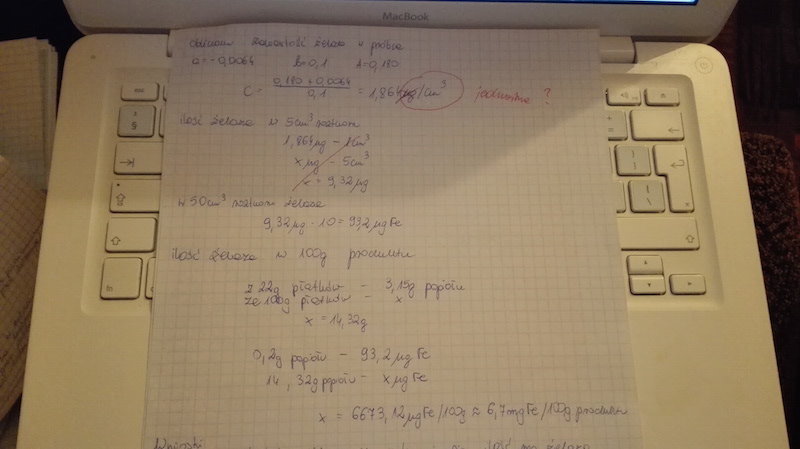 MacBook
zawartość żelaza w próbce
a = -0,0064 b = 0,1 A = 0,180
C = 0,180 + 0,0064 / 0,1 = 1,864 µg/cm³ jednostka ?
ilość żelaza w 5cm³ roztworu
1,864 µg - 1cm³
x µg - 5cm³
x = 9,32 µg
w 50cm³ roztworu żelaza
9,32 µg · 10 = 93,2 µg Fe
ilość żelaza w 100g produktu
z 22g płatków - 3,15g popiołu
ze 100g płatków - x
x = 14,32g
0,2g popiołu - 93,2 µg Fe
14,32g popiołu - x µg Fe
x = 6673,12 µg Fe/100g ≈ 6,7 mg Fe/100g produktu
Wnioski
ilość żelaza
esc
fn